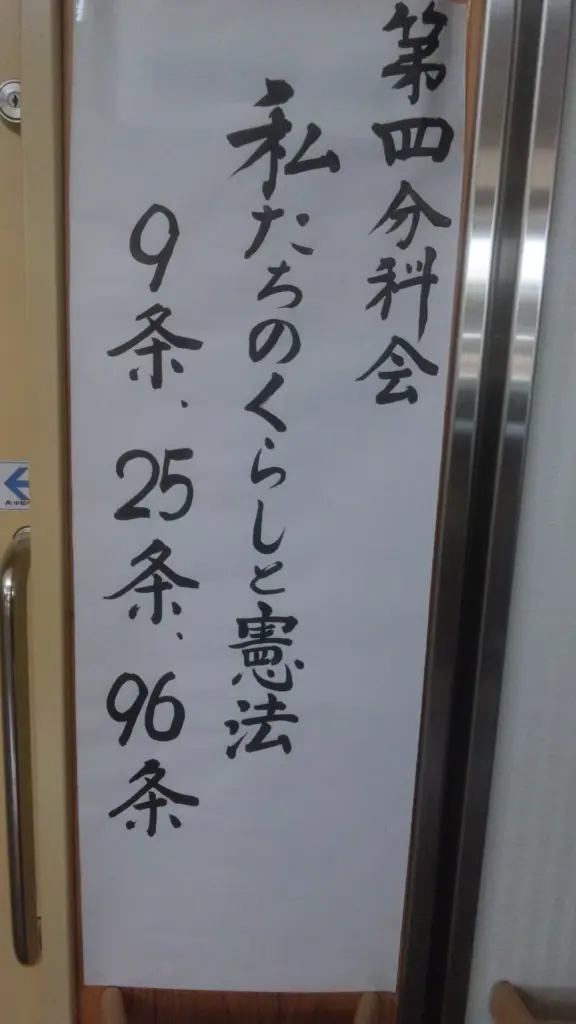 第四分科会
私たちのくらしと憲法
9条、25条、96条